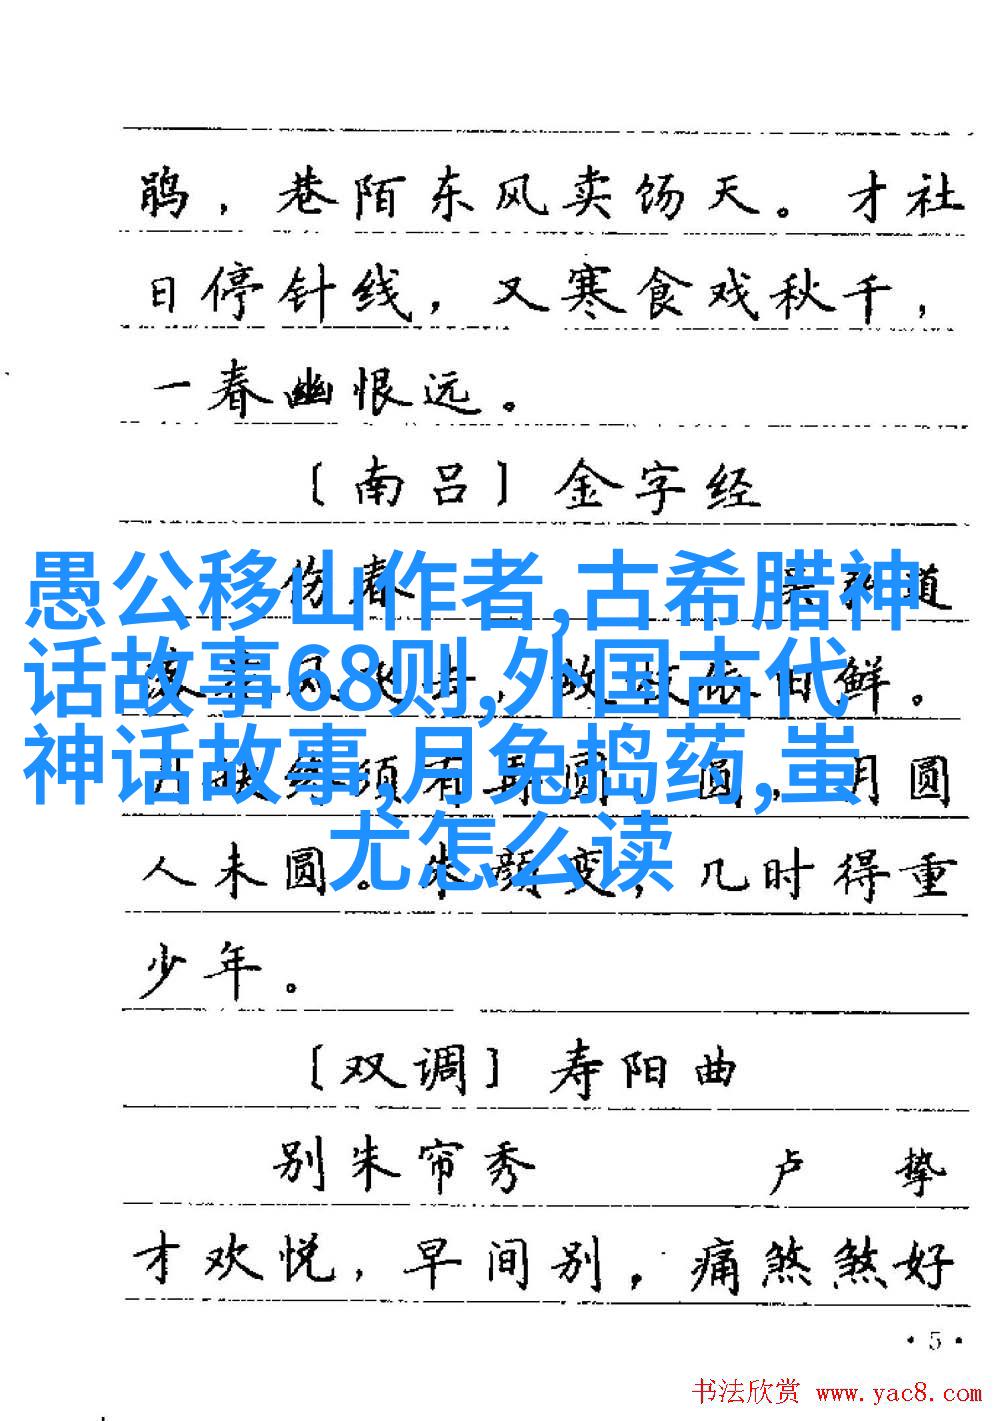 鹃，巷陌东风卖饧天。才社
日停针线，又寒食戏秋千，
一春幽恨远。
〔南吕〕金字经
伤春
道
愚公移山作者,古希腊神
话故事68则,外国古代
神话故事,月兔捣药,蚩
尤怎么读
鲜。
月圆
人未圆。朱颜变，几时得重
少年。
〔双调〕寿阳曲
别朱帘秀 卢 挚
才欢悦，早间别，痛煞煞好
·5·
书法欣赏 www.yac8.com